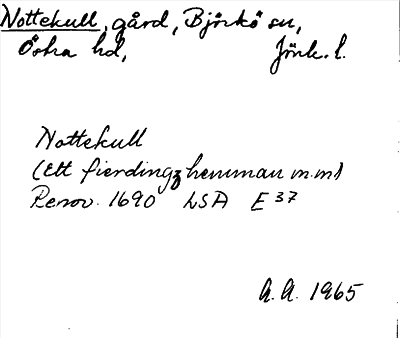 Nottekull, gård, Björkö sn,
Östra hd, Jönk. l.
Nottekull
(Ett fierdingz hemman m.m)
Renov. 1690 LSA E 37
A. A. 1965